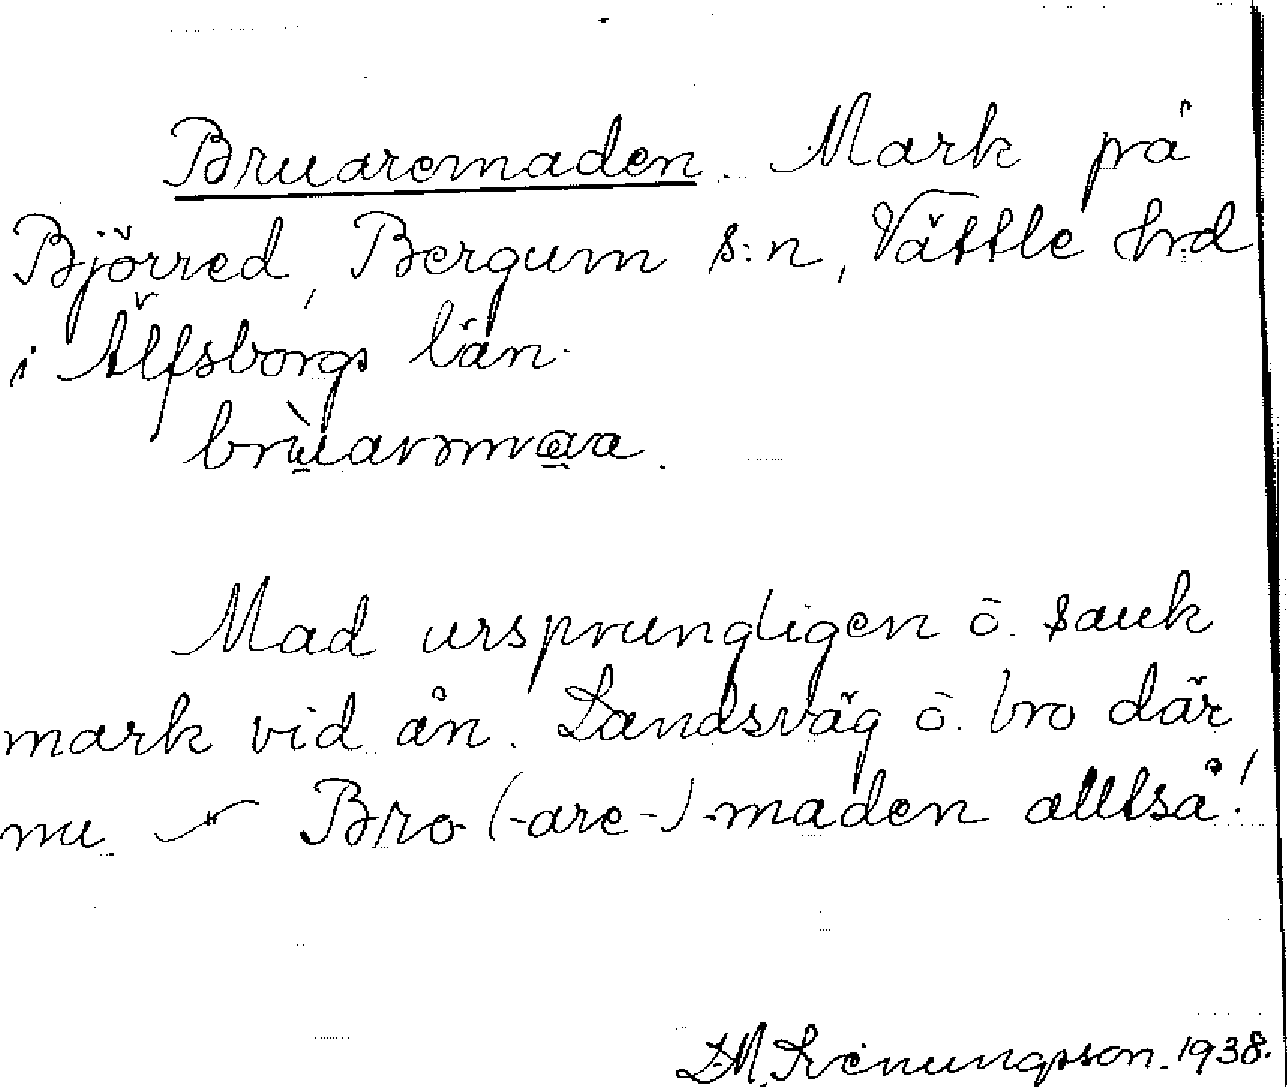 Bruaremaden. Mark på
Björred, Bergum s:n, Vättle hd
i Älfsborgs län.
brùarəmaa.
Mad ursprungligen o. sank
mark vid ån. Landsväg o. bro där
nu. Bro (-are-) maden alltså!
Svenungsson. 1938.